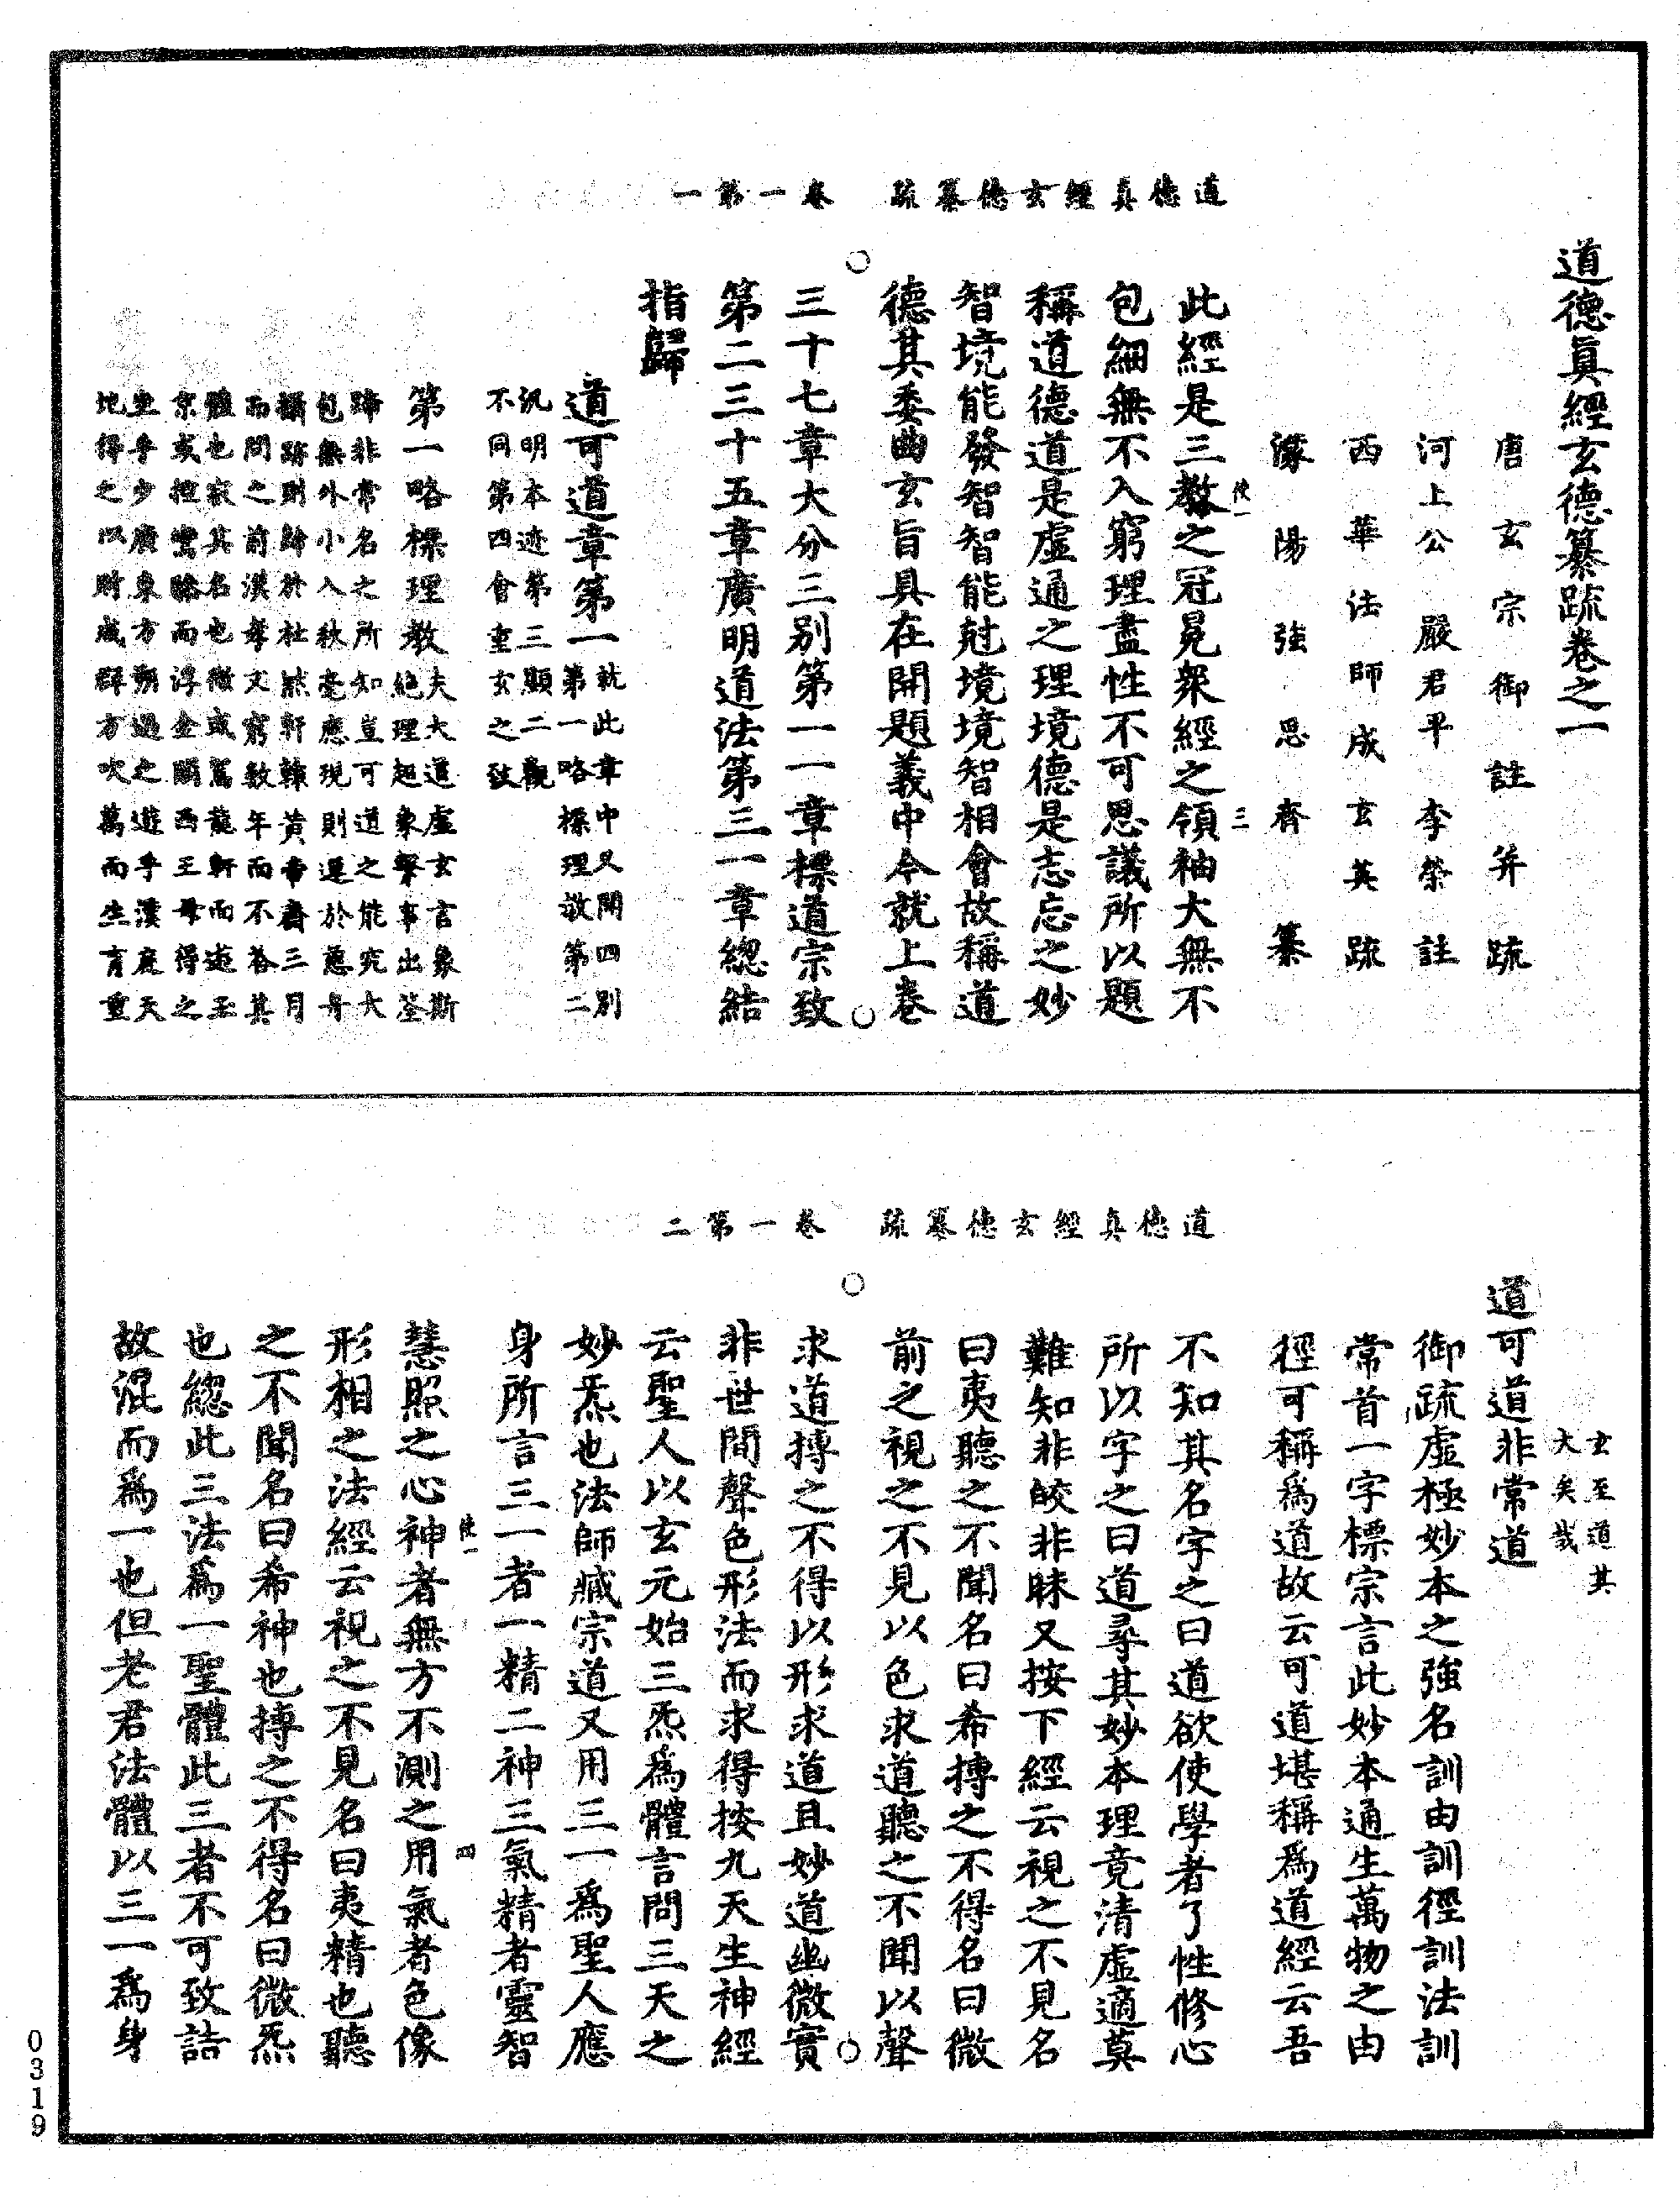 道德真經玄德纂疏　卷一第一
道德眞經玄德纂疏卷之一
唐玄宗御註并疏
河上公　嚴君平　李榮註
西華法師成玄英疏
濛陽強思齊纂
此經是三教之冠冕衆經之領袖大無不
包細無不入窮理盡性不可思議所以題
稱道德道是虛通之理境德是志忘之妙
智境能發智智能尅境境智相會故稱道
德其委曲玄旨具在開題義中今就上卷
三十七章大分三別第一一章標道宗致
第二三十五章廣明道法第三一章總結
指歸
道可道章第一
就此章中又開四別
第一略標理教第二
汎明本迹第三顯二觀
不同第四會重玄之致
第一略標理教
夫大道虛玄言象斯
絕理超象繫事出筌
蹄非常名之所知豈可道之能究大
包無外小入秋毫應現則運於慈舟
攝跡則歸於杜默軒轅黃帝齋三月
而問之前漢孝文窮數年而不荅其
體也寂其名也微或駕龍軒而遊玉
京或控鸞輅而浮金闕西王母得之
坐乎少廣東方朔過之遊乎漢庭天
地得之以財成群方吹萬而生育重
道德真經玄德纂疏　卷一第二
玄至道其
大矣哉
道可道非常道
御疏虛極妙本之強名訓由訓徑訓法訓
常首一字標宗言此妙本通生萬物之由
徑可稱爲道故云可道堪稱爲道經云吾
不知其名字之曰道欲使學者了性修心
所以字之曰道尋其妙本理竟清虛適莫
難知非皎非昧又按下經云視之不見名
曰夷聽之不聞名曰希摶之不得名曰微
前之視之不見以色求道聽之不聞以聲
求道摶之不得以形求道且妙道幽微實
非世間聲色形法而求得按九天生神經
云聖人以玄元始三炁爲體言問三天之
妙炁也法師臧宗道又用三一爲聖人應
身所言三一者一精二神三氣精者靈智
慧照之心神者無方不測之用氣者色像
形相之法經云視之不見名曰夷精也聽
之不聞名曰希神也摶之不得名曰微炁
也總此三法爲一聖體此三者不可致詰
故混而爲一也但老君法體以三一爲身
0319